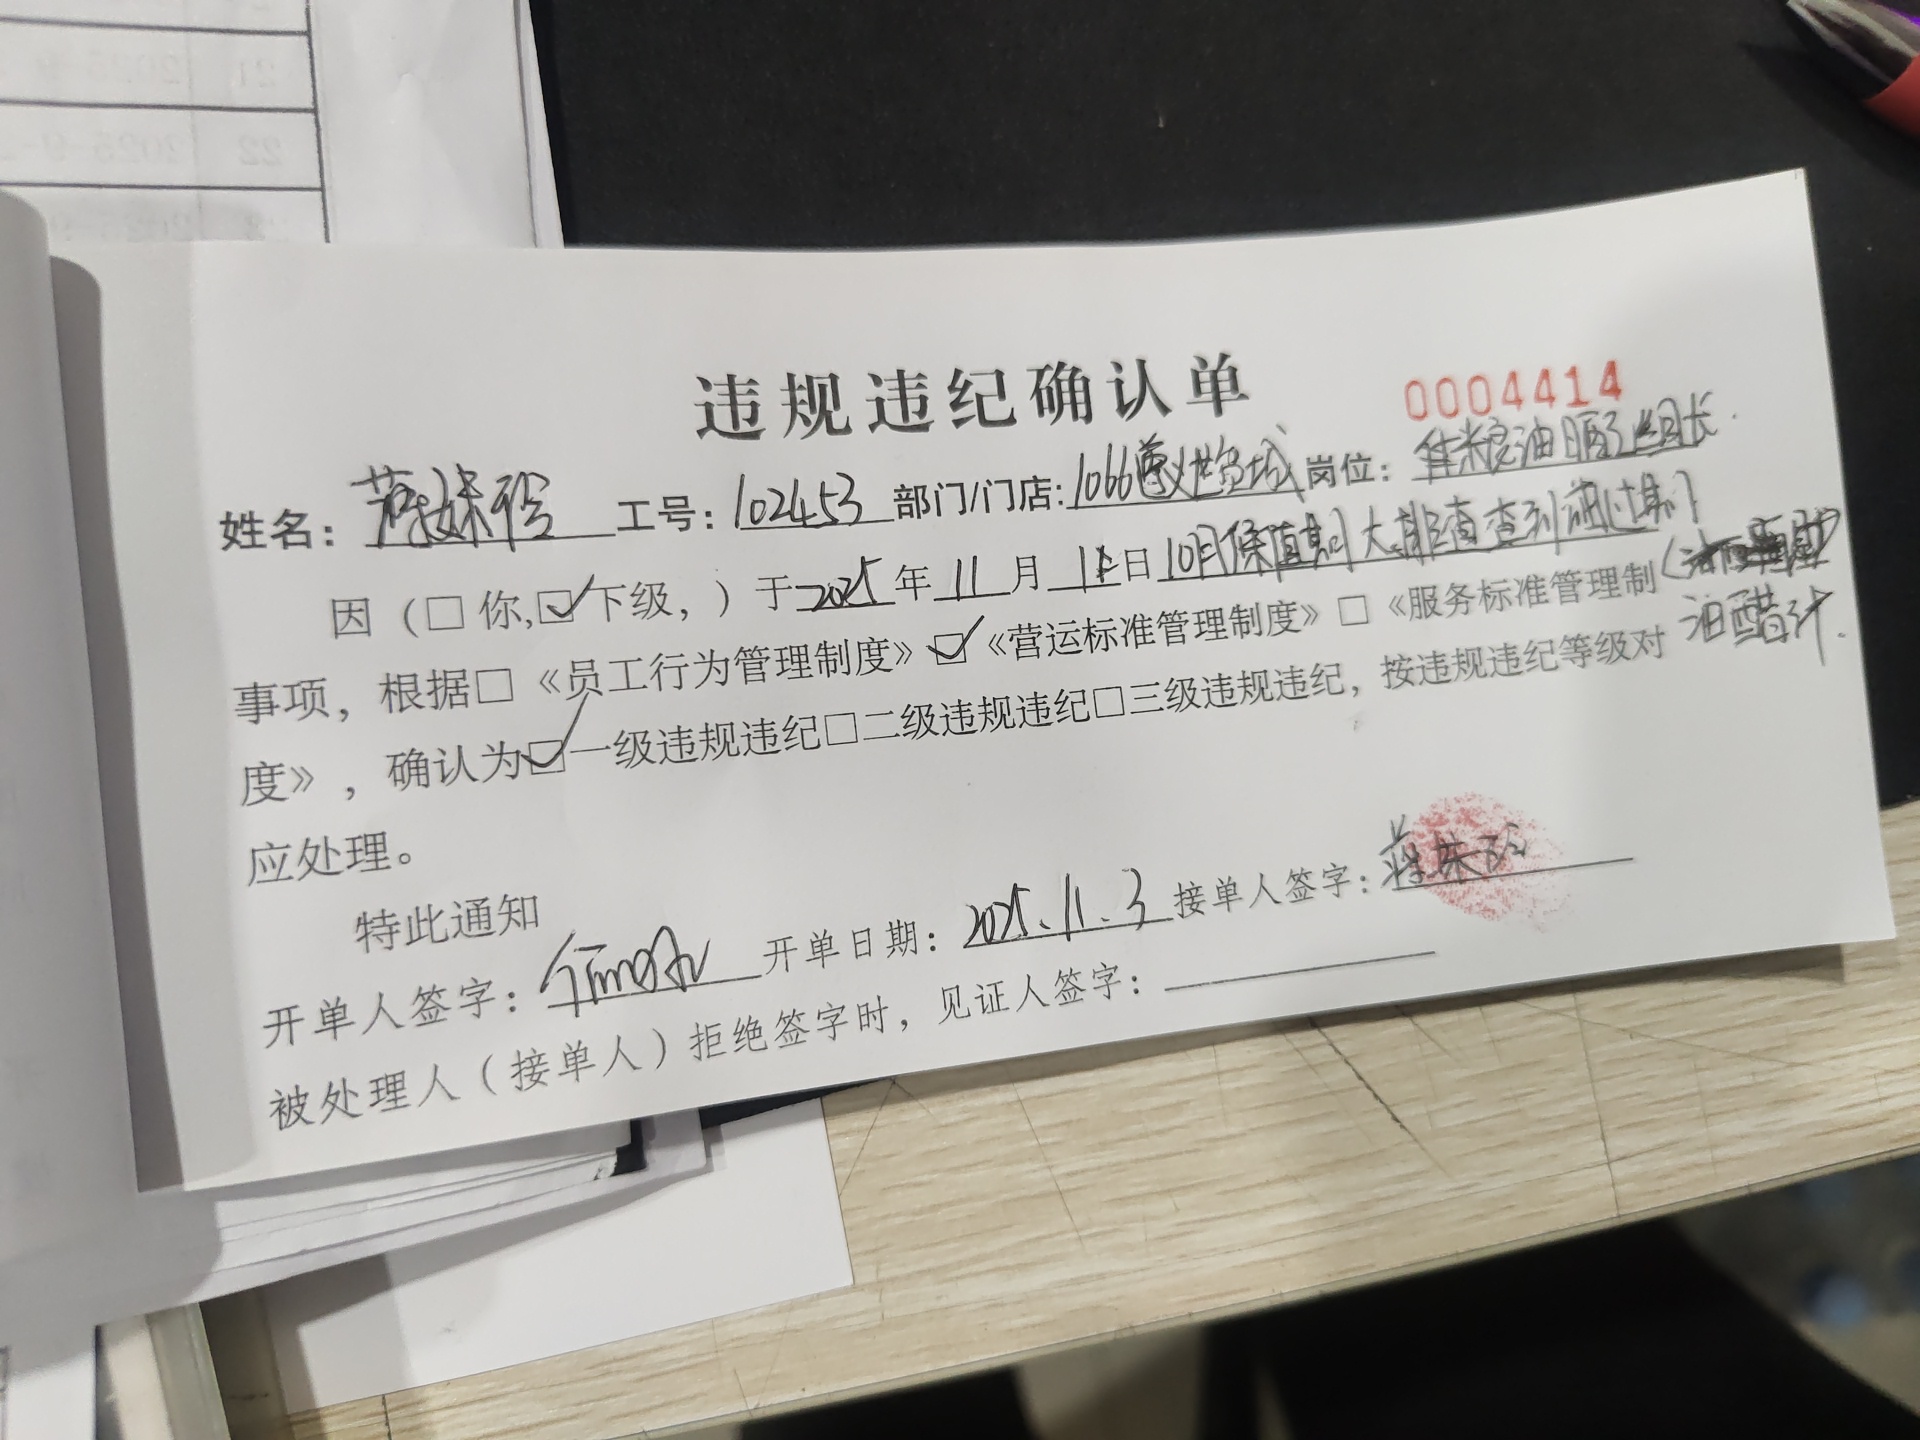 21 2025-9
22 2025-9-
违规违纪确认单
0004414
姓名：蒋妹玲 工号：102453 部门/门店：1066遵义世贸城 岗位：粮油 组长
因（□你,☑下级，）于2025年11月11日10月保质期大排查查到 过期
事项，根据□《员工行为管理制度》☑《营运标准管理制度》□《服务标准管理制 油醋汁.
度》，确认为☑一级违规违纪□二级违规违纪□三级违规违纪，按违规违纪等级对
应处理。
特此通知
开单人签字： 开单日期：2025.11.3 接单人签字：蒋妹玲
被处理人（接单人）拒绝签字时，见证人签字：